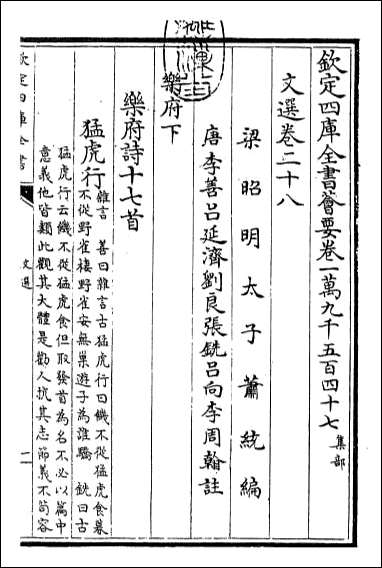 欽定四庫全書薈要卷一萬九千五百四十七 集部
文選卷二十八
梁昭明太子蕭統編
唐李善呂延濟劉良張銑呂向李周翰註
樂府下
樂府詩十七首
猛虎行
雜言 善曰雜言古猛虎行曰饑不從猛虎食暮
不從野雀棲野雀安無巢遊子為誰驕 銑曰古
猛虎行云饑不從猛虎食但取發首為名不必以篇中
意義他皆類此觀其大體是勸人抗其志節義不苟容
欽定四庫全書
文選